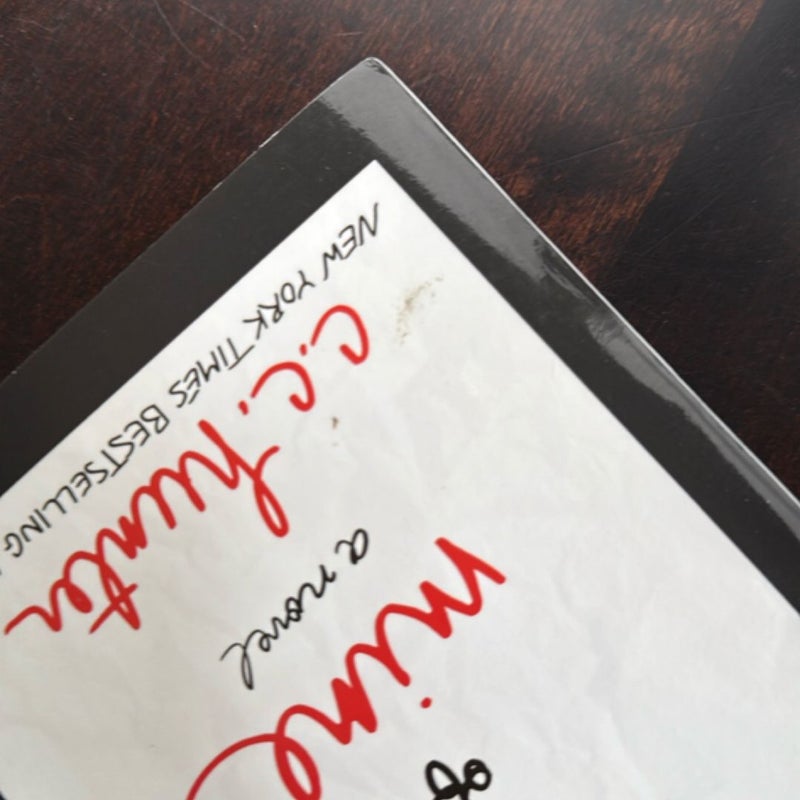 of
mine
a novel
c.c. hunter
NEW YORK TIMES BESTSELLING